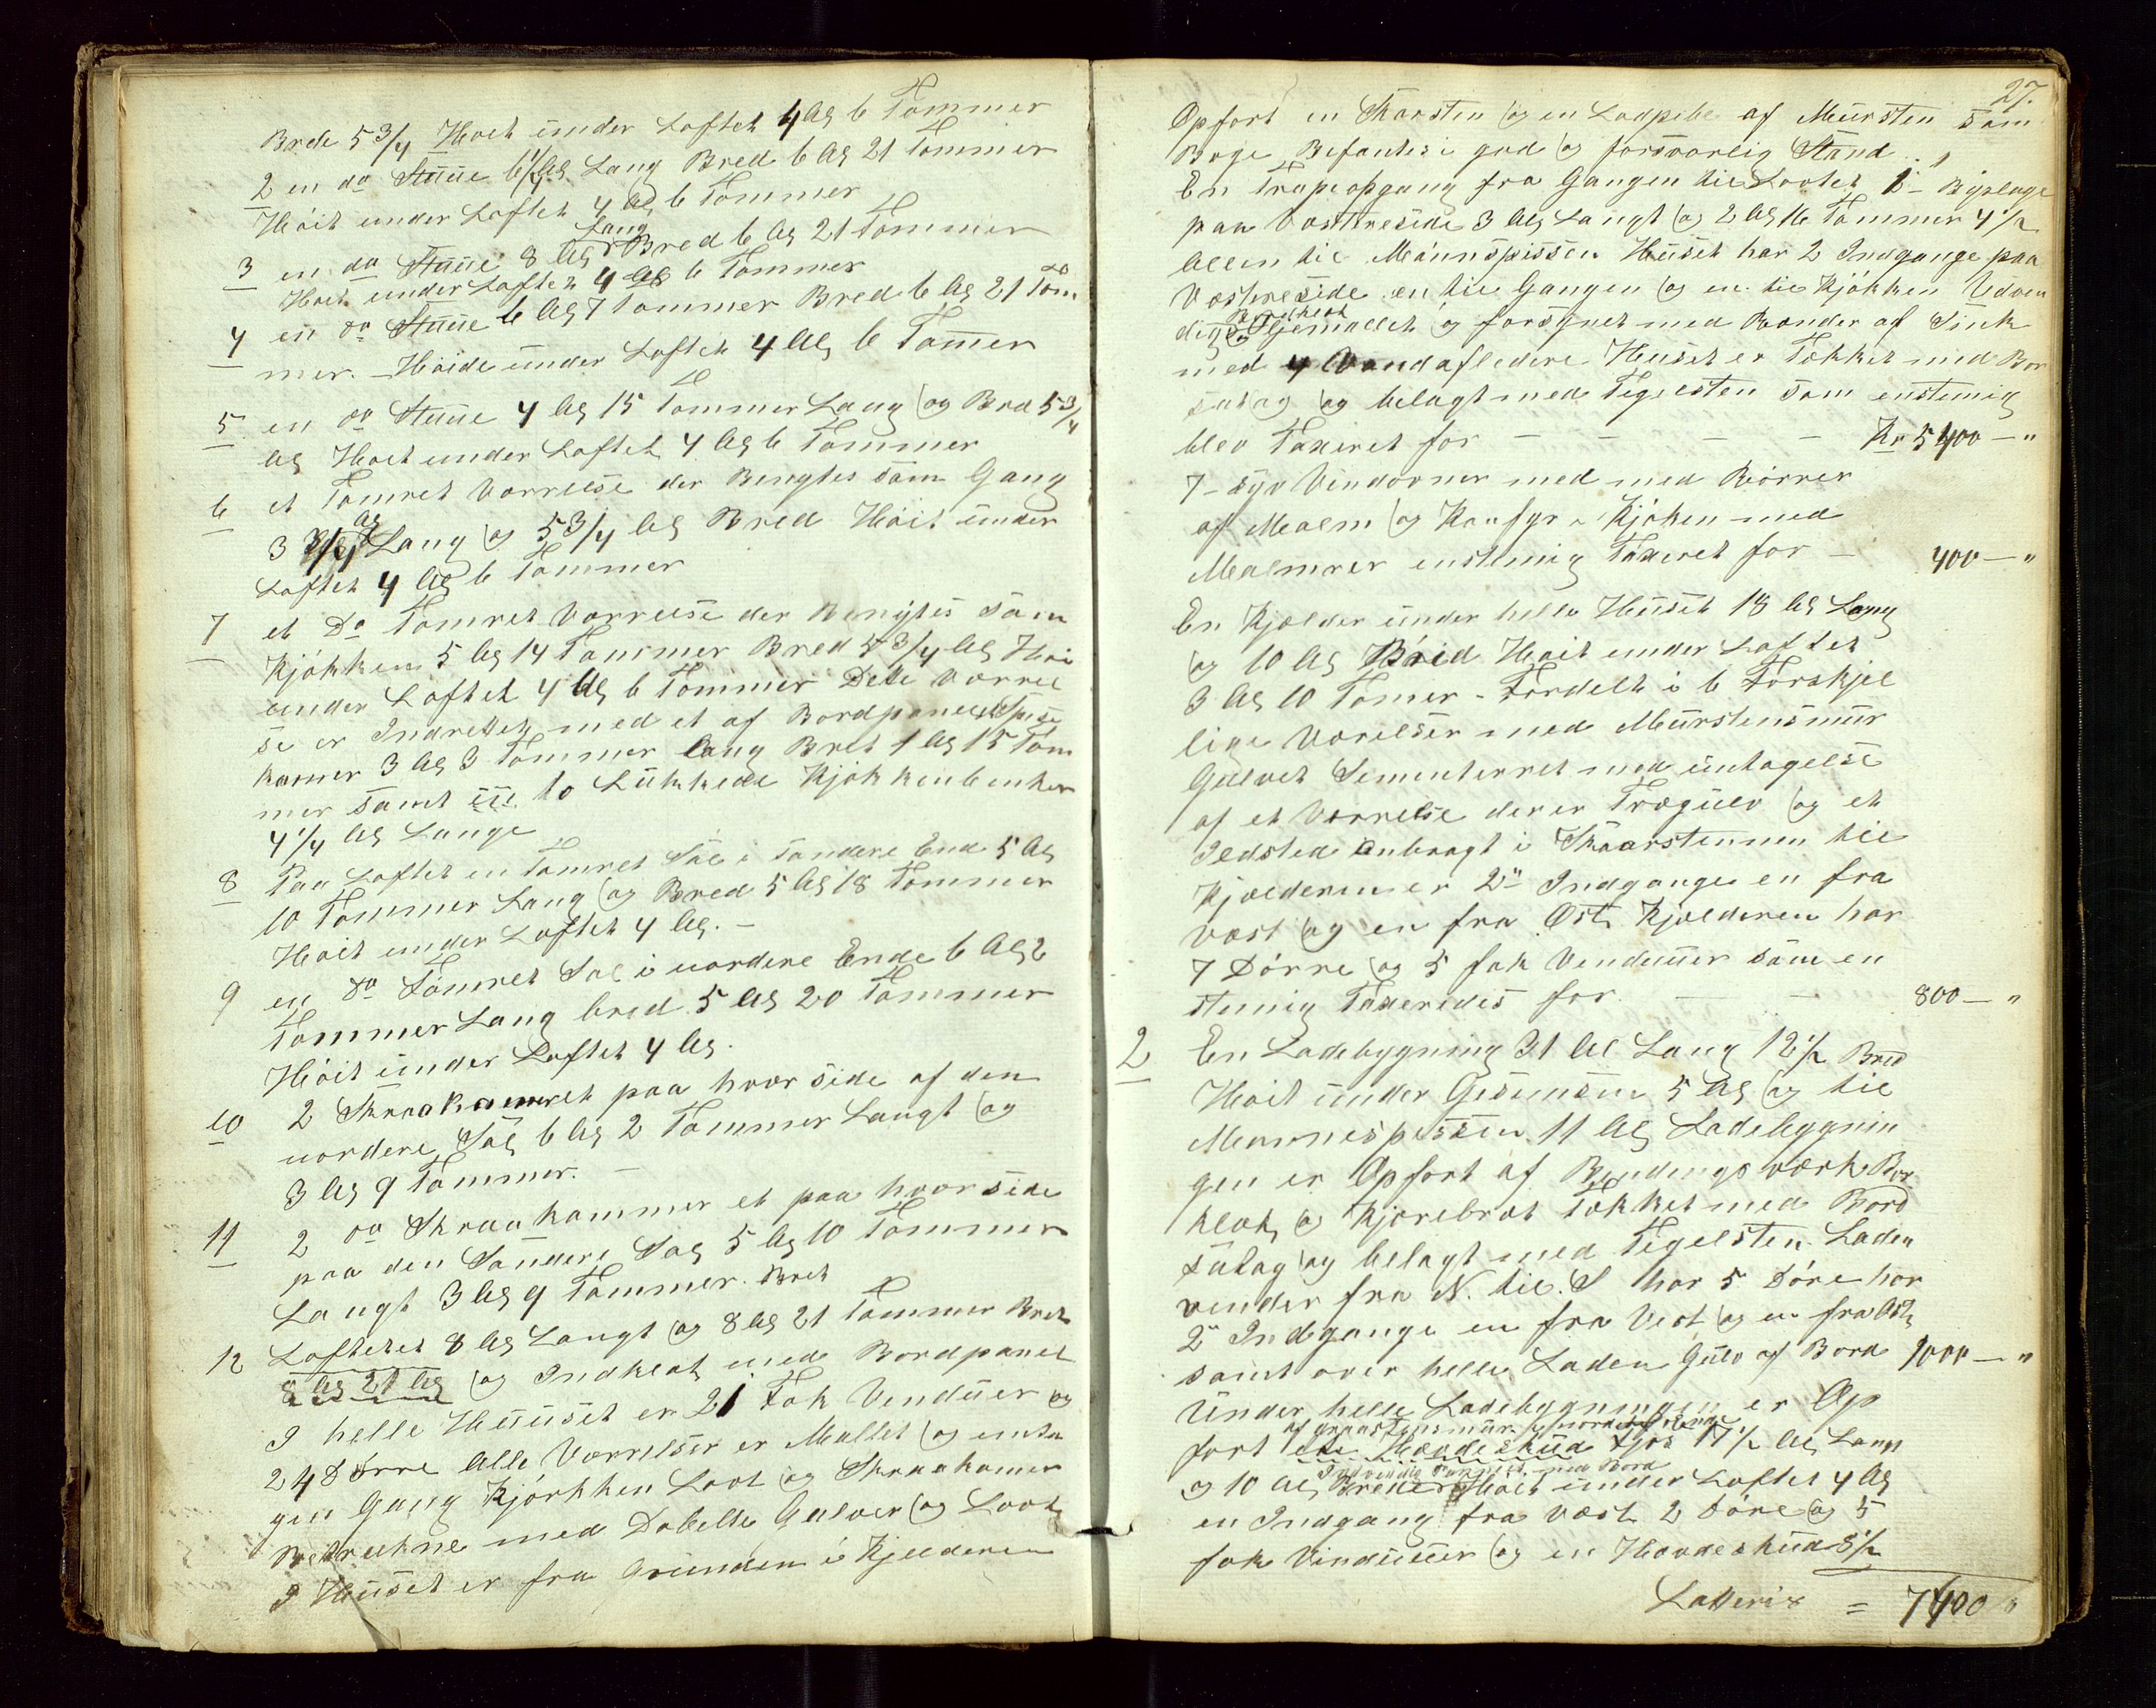 Brede 5 3/4 Høit under Loftet 4 Al 6 Tommer
2 en do Stuue 6 1/4 Al Lang Bred 6 Al 21 Tommer
Høit under Loftet 4 Al 6 Tommer
Lang
3 en do Stuue 8 Al Bred 6 Al 21 Tommer
Høit under Loftet 4 Al 6 Tommer
4 en do Stuue 6 Al 7 Tommer Bred 6 Al 21 Tom
mer. Høide under Loftet 4 Al 6 Tommer
5 en do Stuue 4 Al 15 Tommer Lang og Bred 5 3/4
Al Høit under Loftet 4 Al 6 Tommer
6 et Tømret Værrelse der Bengtes som Gang
Al
3 3/4 Lang og 5 3/4 Al Bred Høit under
Loftet 4 Al 6 Tommer
7 et Do Tømret Værrelse der Bengtes som
Kjøkken 5 Al 14 Tommer Bred 5 3/4 Al Høi
under Loftet 4 Al 6 Tommer Dette Værrel
se er Indrettet med et af Bordpanel Spise
kamer 3 Al 3 Tommer lang Bret 1 Al 15 Tom
mer samt to Lukkede Kjøkkenbenker
4 1/4 Al Lange
8 Paa Loftet en Tømret Sal i søndere End 5 Al
10 Tommer Lang og Bred 5 Al 18 Tommer
Høit under Loftet 4 Al. –
9 en do Tømret Sal i nordere Ende 6 Al 2
Tommer Lang bred 5 Al 20 Tommer
Høit under Loftet 4 Al.
10 2 Skraakamer et paa hvor side af den
nordere Sal 6 Al 2 Tommer Langt og
3 Al 9 Tommer. –
11 2 do Skraakammer et paa hvor side
paa den Søndere Sal 5 Al 10 Tommer
Langt 3 Al 9 Tommer. Bret
12 Loftetet 8 Al Langt og 8 Al 21 Tommer Bret
8 Al 21 Al og Indklæt med Bordpanel
I helle Huuset er 21 Fak Venduer og
24 Dørre Alle Værrelser er Mallet og unta
gen Gang Kjørkken Loot og Skraakamer
Betrukne med Dobelte Gulver og Loot
I Huset er fra Grunden i Kjelderen
27.
Opført en Skorsten og en Ladpibe af Mursten som
Bege Befantes i god og forsvorlig Stand
En Trapeopgang fra Gangen til Lovtet 1 Byslage
paa Vestreside 3 Al Langt og 2 Al 16 Tommer 4 1/2
Allen til Mønnspissen Huset har 2 Indgange paa
Vestreside en til Gangen og en til Kjøkken Udven
dig Bordklæt Oljemallet og forsynet med Bonder af Sink
med 4 Vandafledere Huset er Tækket med Bor
sutag og belagt med Tegelsten som enstemig
blev Taxeret for – – – – Kr 5400 – "
7 – syv Vindovner med med Rörrer
af Malm og Komfyr i Kjøken med
Malmrer enstemig Taxeret for – 400 – "
En Kjælder under helle Huset 18 Al Lang
og 10 Al Bred Høit under Loftet
3 Al 10 Tomer – Fordelt i 6 Forskjel
lige Værelser med Murstensmur
Gulvet Sementerret med untagelse
af et Værrelse der er Trægulv og et
Ildsted anbragt i Skaarstennen til
Kjælderen er 2" Indgange en fra
vest og en fra Øst. Kjælderen har
7 Dørre og 5 fak Venduuer som en
stemig Taxeredes for – – 800 – "
2 En Ladebygning 31 Al Lang 12 1/2 Bred
Høit under Gesimsen 5 Al og til
Mønnespissen 11 Al Ladebygnin
gen er Opført af Bendingsværk Bor
klæt, og Kjørebrot Tækket med Bord
sutag og belagt med Tegelsten. Laden
vender fra N. til S har 5 Døre har
2" Indgange en fra Vest og en fra Øst
samt over helle Laden Gulv af Bord 1000 – "
Under helle Ladebygningen er Op
af graastensmur i nordere Ende
fort Fjøs 17 1/2 Al Lang
Indvendig med Bord
og 10 Al Bred Høit under Loftet 4 Al
en Indgang fra Vest 2 Døre og 5
fak Vinduuer og en Høvdeskuu 8 1/2
Latteris = 7400